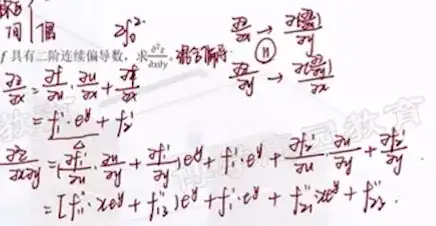 间 偶 2∫₀²
f 具有二阶连续偏导数，求 ∂²z/∂x∂y。混合偏导
∂z/∂x → ∂(∂z/∂x)/∂y
∂z/∂y → ∂(∂z/∂y)/∂x
∂z/∂x = ∂f/∂u · ∂u/∂x + ∂f/∂x
= f₁' · e^y + f₂'
∂²z/∂x∂y = (∂f₁'/∂u · ∂u/∂y + ∂f₁'/∂y) e^y + f₁' · e^y + ∂f₂'/∂u · ∂u/∂y + ∂f₂'/∂y.
= [f₁₁'' · xe^y + f₁₃''] e^y + f₁' · e^y + f₂₁'' · xe^y + f₂₃''.